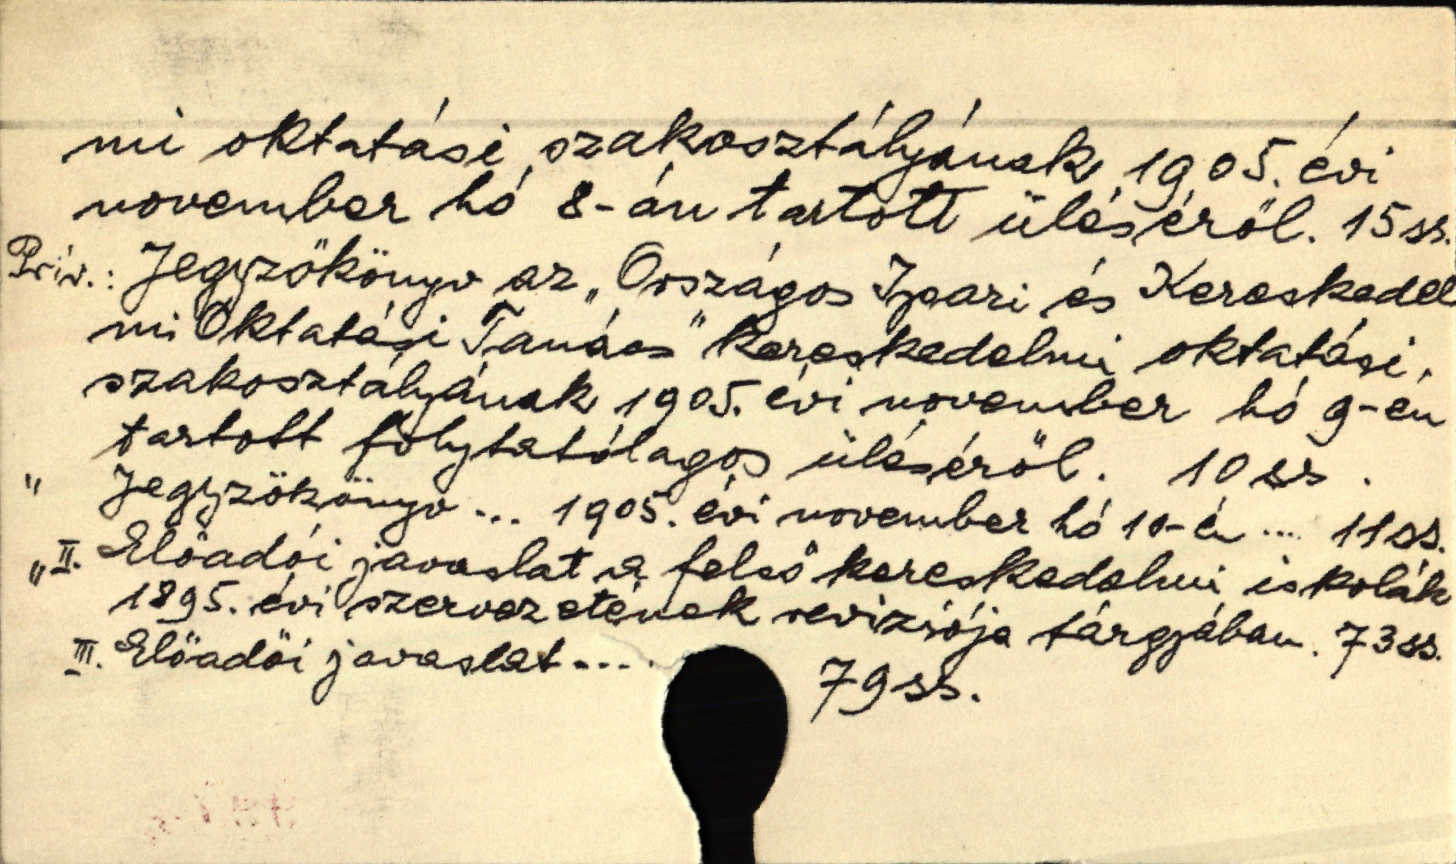 mi oktatási szakosztályának 1905. évi
november hó 8-án tartott üléséről. 15 ss.
Priv.: Jegyzőkönyv az „Országos Ipari és Kereskedel
mi Oktatási Tanács" kereskedelmi oktatási,
szakosztályának 1905. évi november hó 9-én
tartott folytatólagos üléséről. 10 ss.
" Jegyzőkönyv ... 1905. évi november hó 10-én ... 11 ss.
" II. Előadói javaslat a felső kereskedelmi iskolák
1895. évi szervezetének reviziója tárgyában. 73 ss.
III. Előadói javaslat .... 79 ss.